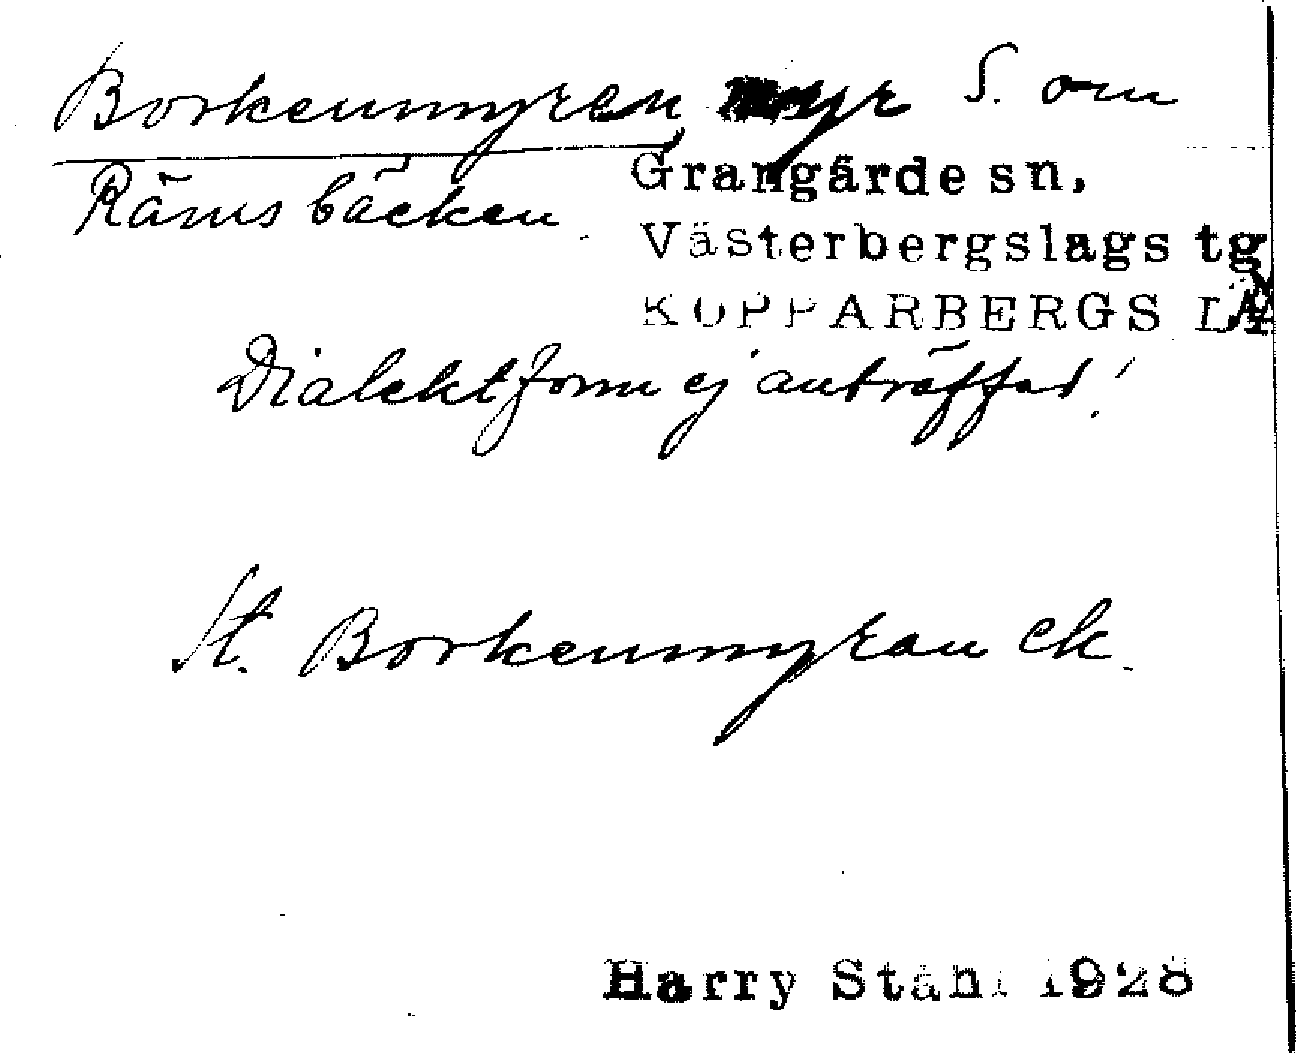 Borkenmyren myr S. om
Grangärde sn.
Rämsbäcken
Västerbergslags tg
KOPPARBERGS LÄN
Dialektform ej anträffad!
St. Borkenmyran ek.
Harry Ståhl 1928